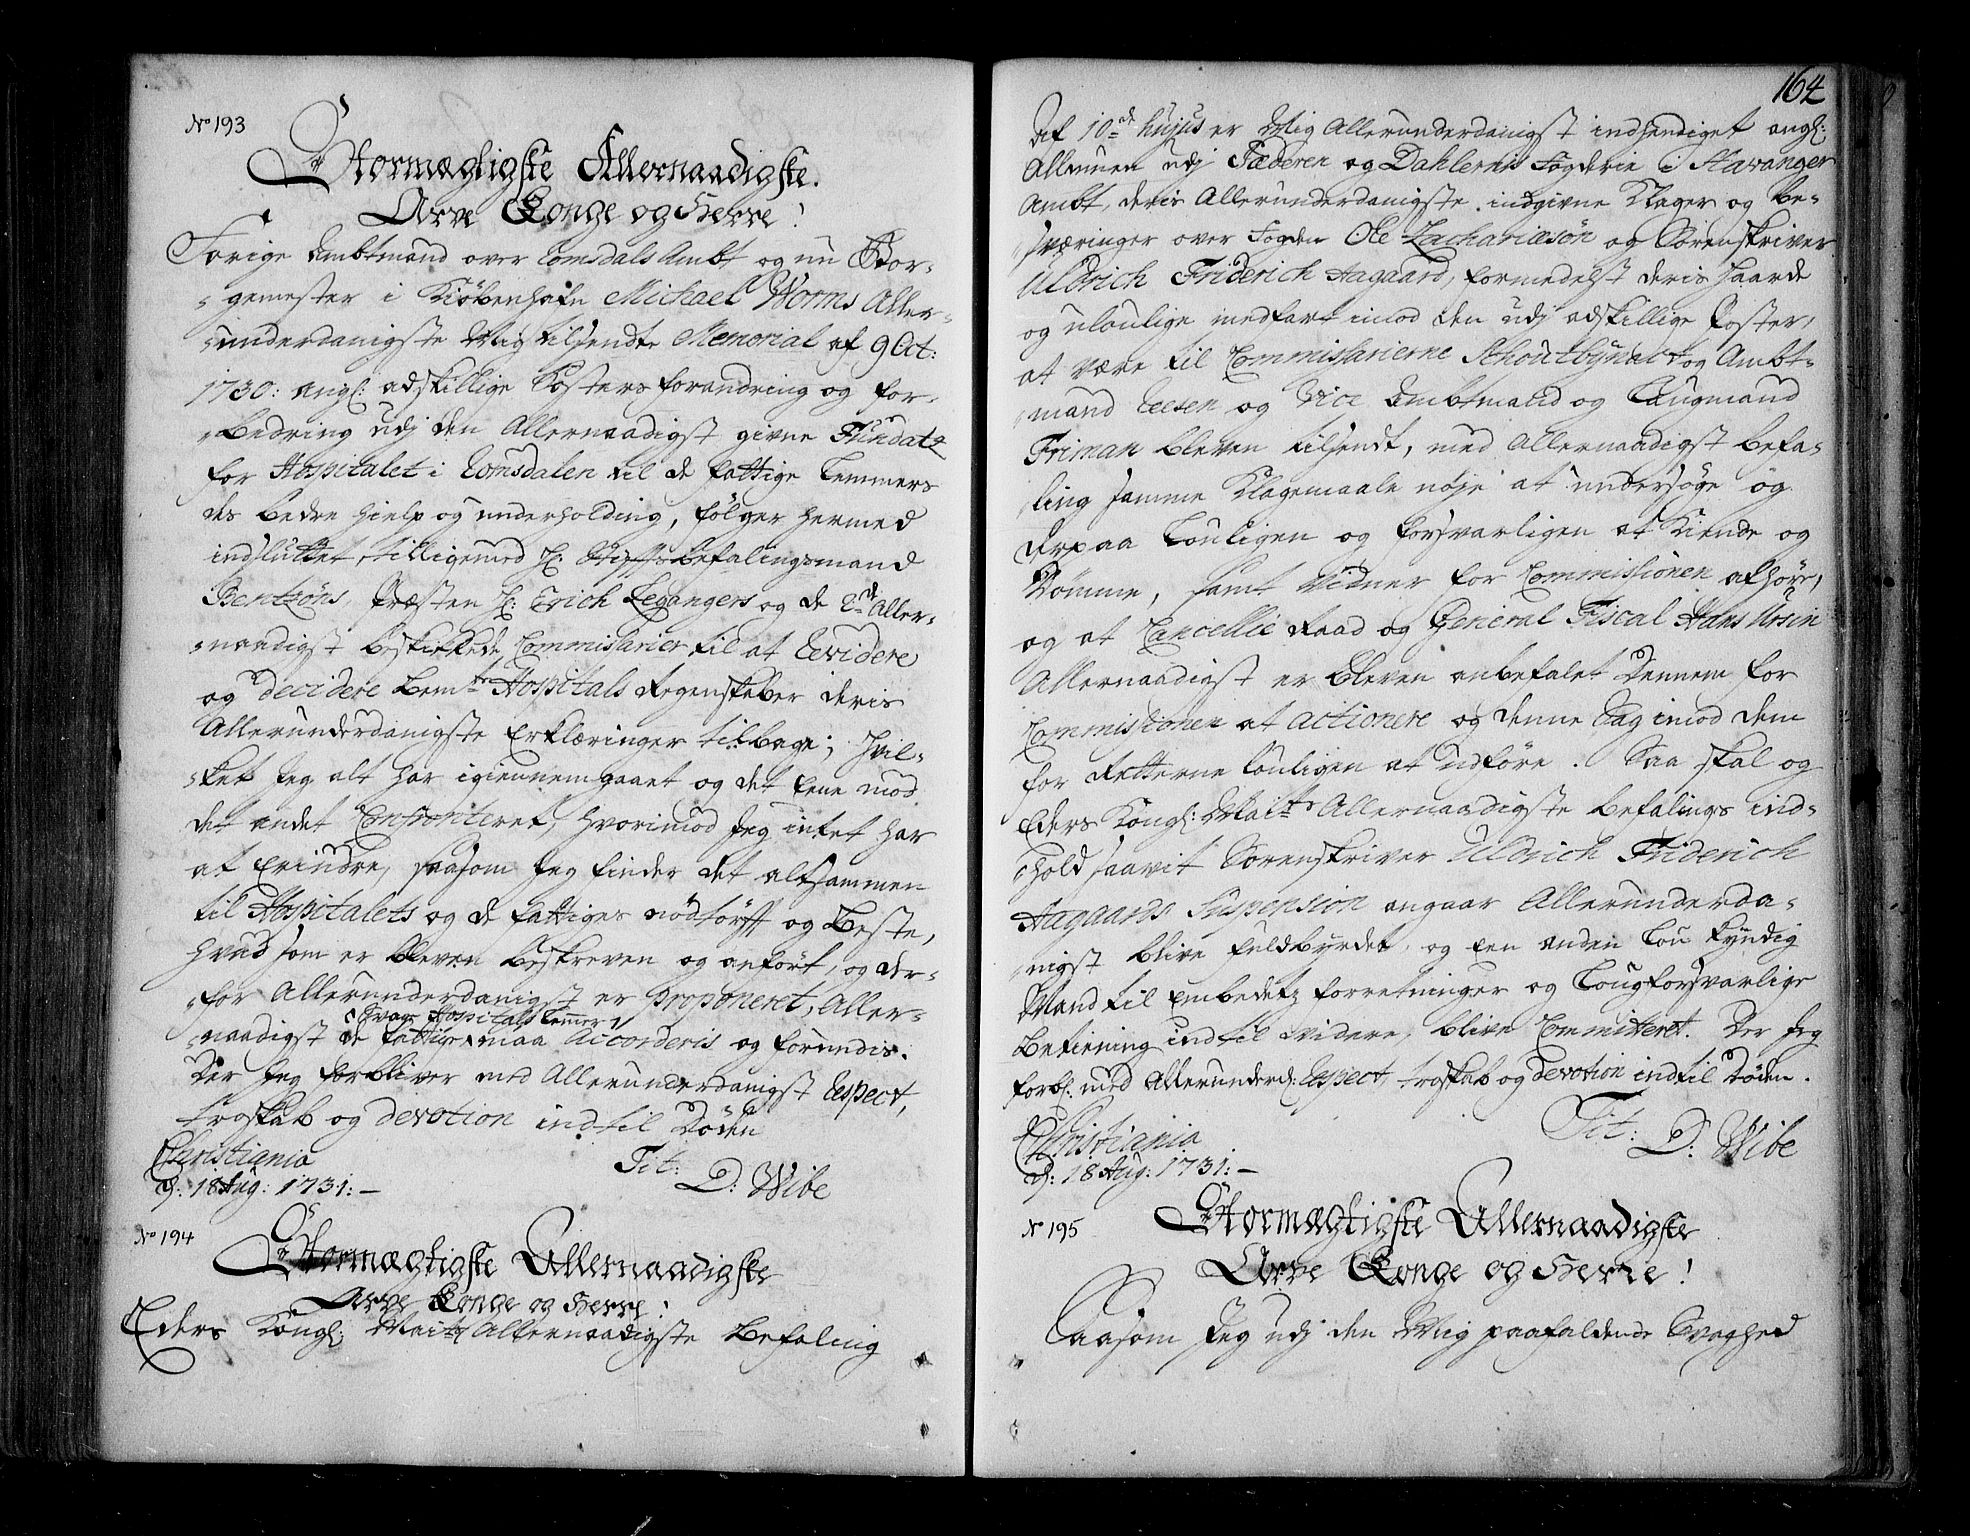 No 193
Stormægtigste Allernaadigste
Arve Konge og Herre!
Forige Ambtmand over Romsdals Ambt og nu Bor-
gemester i Kiøbenhafn Michael Worms Aller-
underdanigste Mig tilsendte Memorial af 9 Oct:
1730: angl: adskillige Posters forandring og for-
bedring udj den Allernaadigst givne Fundatz
for Hospitalet i Romsdalen til de fattige Lemmers
des bedre hielp og underholding, følger hermed
indsluttet, tilligemed H: Stiftsbefalingsmand
Bentzons, Præsten H: Erich Leganger og de 2de Aller-
naadigst beskikkede Commissarier til at Revidere
og decidere bemte Hospitals Regenskaber deris
Allerunderdanigste Erklæringer tilbage; hvil-
ket Jeg alt har igiennemgaaet og det Eene mod
det andet Confronteret, hvorimod Jeg intet har
at Erindre, saasom Jeg finder det altsammen
til Hospitalets og de fattiges nødtørft og Beste,
hvad som er bleven beskreven og anført, og der-
for Allerunderdanigst er Proponeret, Aller-
svage Hospitals Lemmer
naadigst de fattige maa accorderis og forundis.
Der Jeg forbliver med Allerunderdanigst Respect,
troskab og devotion indtil Døden
Christiania
d: 18 Aug: 1731:-
Tit:
D: Wibe
No 194
Stormægtigste Allernaadigste
Arve Konge og Herre!
Eders Kongl: Maitz Allernaadigste Befaling
164
Af 10de hujus er Mig Allerunderdanigst indhendiget angl:
Allmuen udj Jæderen og Dahlernis Fogderie i Stavanger
Ambt, deris Allerunderdanigste indgivne Klager og be-
sværinger over Fogden Ole Zachariæsøn og Sorenskriver
Uldrich Friderich Aagaard, formedelst deris haarde
og ulovlige medfart imod den udj adskillige Poster,
at være til Commissarierne Schoutbynact og Ambt-
mand Reesen og Vice Ambtmand og Laugmand
Friman bleven tilsendt, med Allernaadigst befa-
ling samme Klagemaale nøje at undersøge og
derpaa Louligen og forsvarligen at Kiende og
Dømme, samt Vidner for Commissionen afhøre,
og at Cancellie Raad og General Fiscal Hans Ursin
Allernaadigst er bleven anbefalet Dennem for
Commissionen at actionere og denne Sag imod dem
for Retterne Louligen at udføre. Saa skal og
Eders Kongl: Maitts Allernaadigste befalings ind-
hold saavit Sorenskriver Uldrich Friderich
Aagaards Suspension angaar Allerunderda-
nigst blive fuldbyrdet og een anden Lou kyndig
Mand til Embedetz forretninger og Lougforsvarlige
Betiening indtil videre, blive Committeret. Der Jeg
forbl: med Allerunderd: Respect, troskab og devotion indtil Døden.
Christiania
d: 18 Aug: 1731:-
Tit: D: Wibe
No 195
Stormægtigste Allernaadigste
Arve Konge og Herre!
Saasom Jeg udj den Mig paafaldende Svaghed